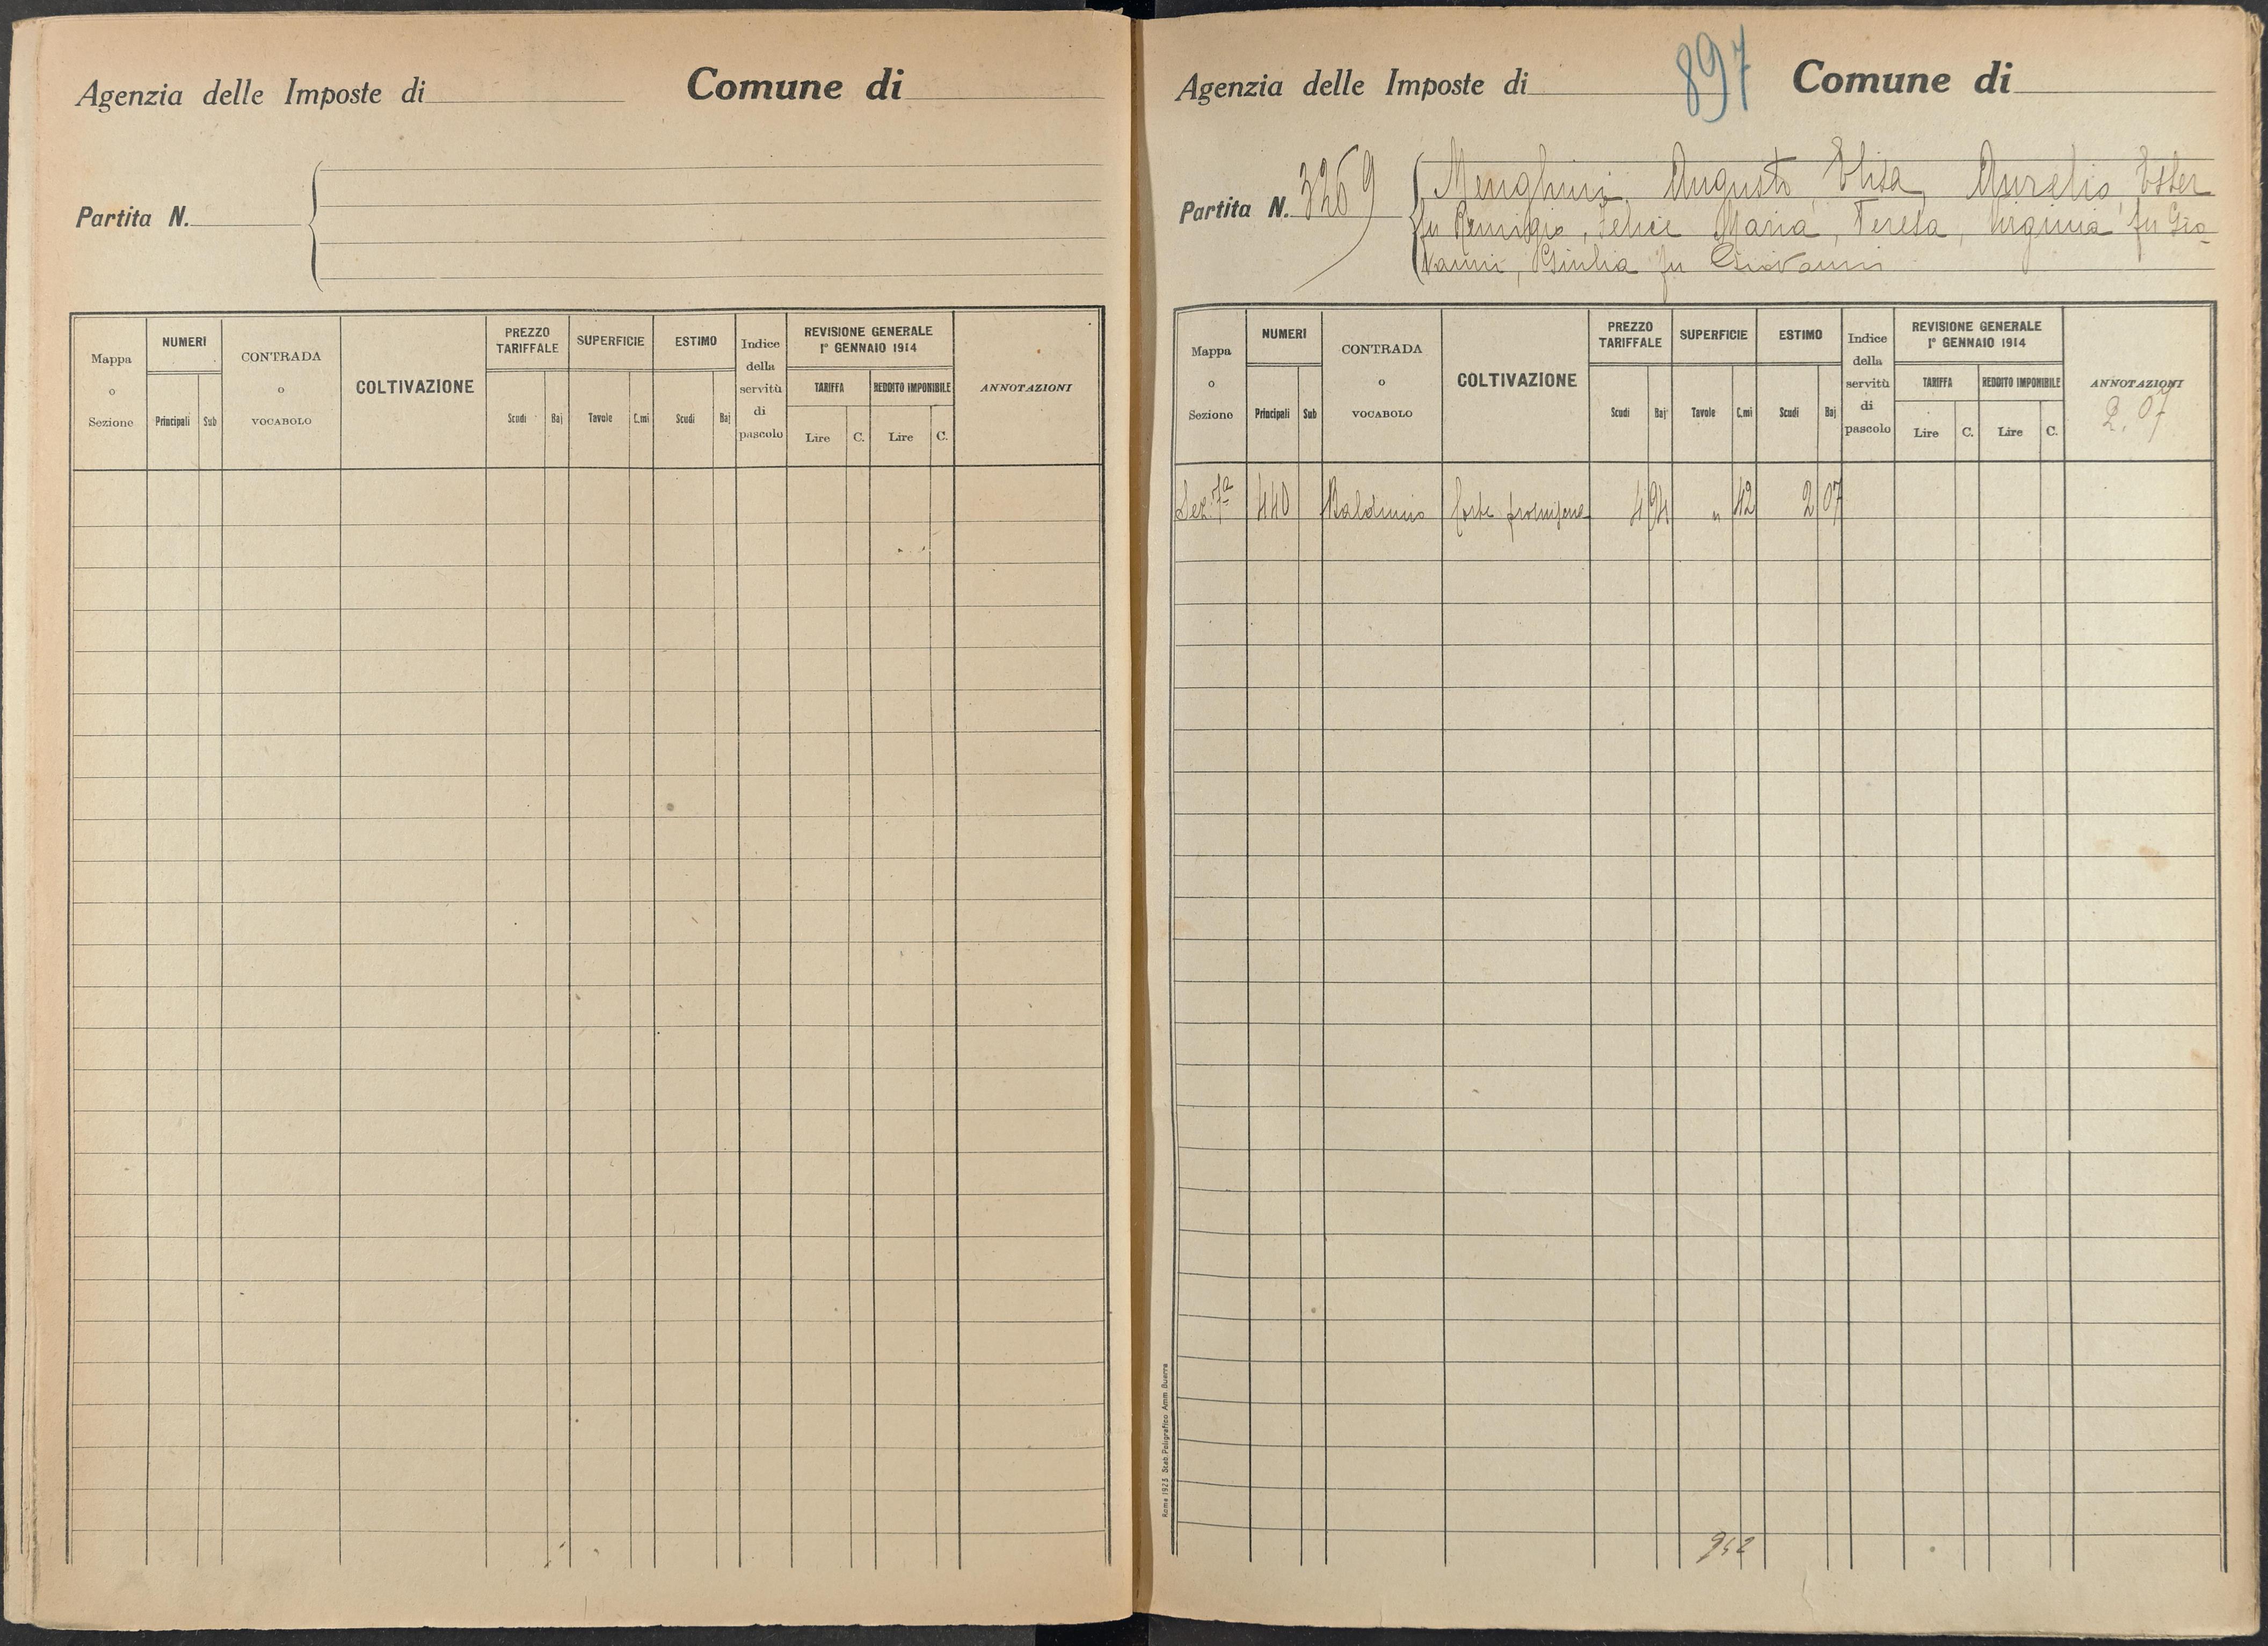 Agenzia delle Imposte di Comune di
Partita N.
Mappa o Sezione
NUMERI
Principali Sub
CONTRADA o VOCABOLO
COLTIVAZIONE
PREZZO TARIFFALE
Scudi Baj
SUPERFICIE
Tavole C.mi
ESTIMO
Scudi Baj
Indice della servitù di pascolo
REVISIONE GENERALE
1° GENNAIO 1914
TARIFFA REDDITO IMPONIBILE
Lire C. Lire C.
ANNOTAZIONI
897
Agenzia delle Imposte di Comune di
Partita N. 3269
Menghini, Augusto, Elisa, Aurelio, Ester
fu Remigio, Felice Maria, Teresa, Virginia fu Gio-
vanni, Giulia fu Giovanni
Mappa o Sezione
NUMERI
Principali Sub
CONTRADA o VOCABOLO
COLTIVAZIONE
PREZZO TARIFFALE
Scudi Baj
SUPERFICIE
Tavole C.mi
ESTIMO
Scudi Baj
Indice della servitù di pascolo
REVISIONE GENERALE
1° GENNAIO 1914
TARIFFA REDDITO IMPONIBILE
Lire C. Lire C.
ANNOTAZIONI
2.07
Sez. 7a 440 4 94 " 42 2 07
Roma 1923 Stab. Poligrafico Amm. Guerra
942